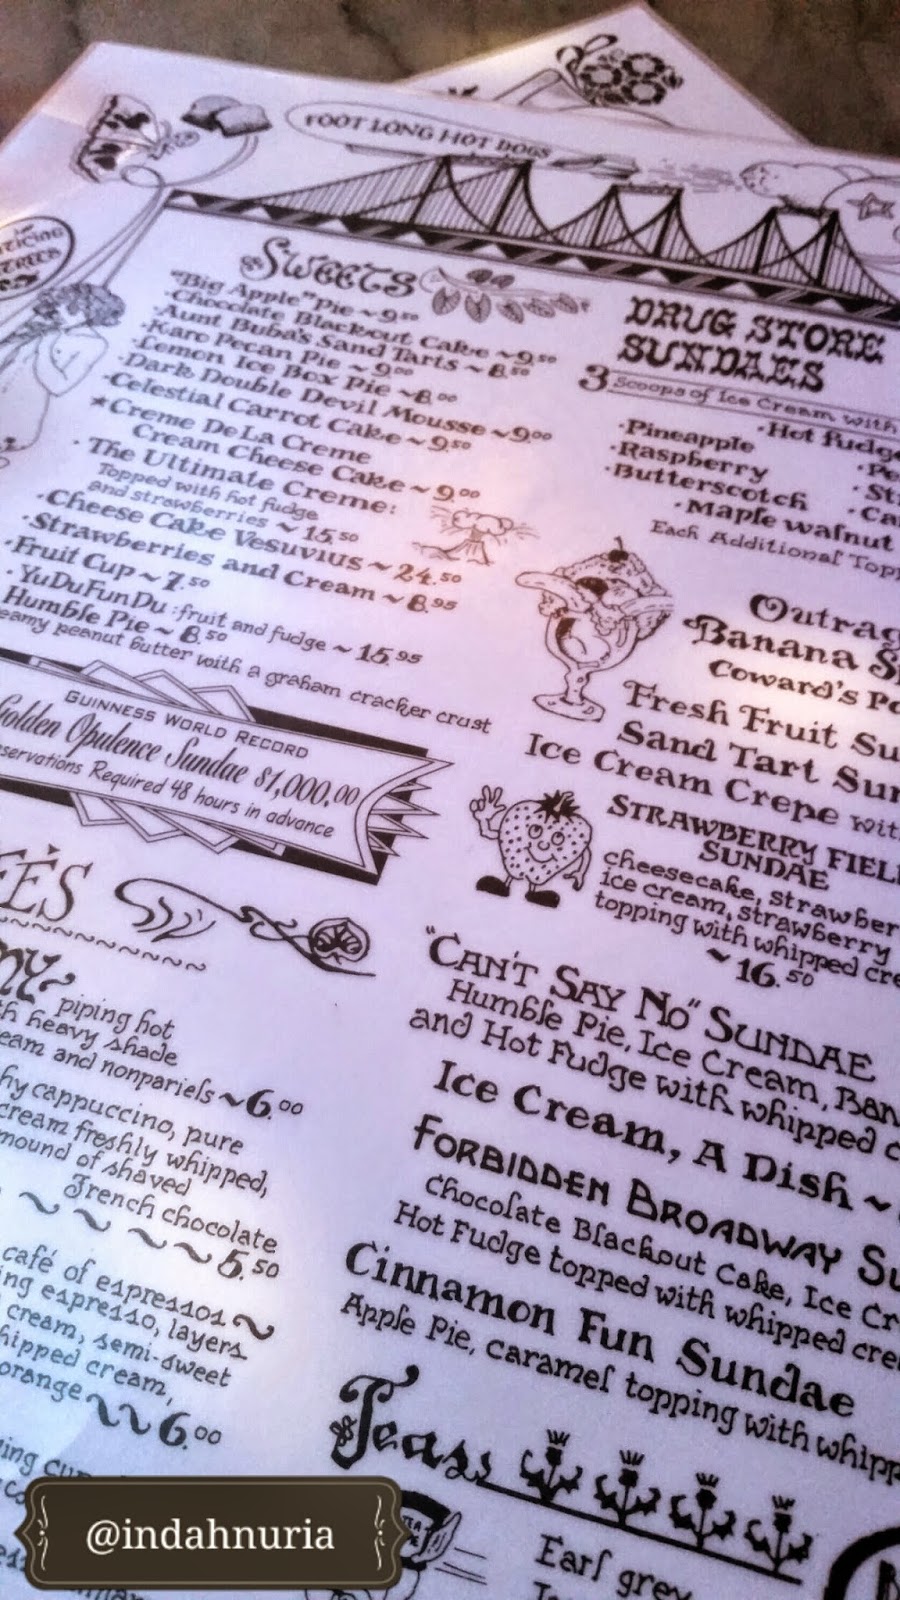 FOOT LONG HOT DOGS
SWEETS
"Big Apple" Pie ~ 9.50
·Chocolate Blackout Cake ~9.50
·Aunt Buba's Sand Tarts ~ 8.50
·Karo Pecan Pie ~ 9.00
·Lemon Ice Box Pie ~8.00
·Dark Double Devil Mousse ~9.00
·Celestial Carrot Cake ~ 9.50
★Creme De La Creme
Cream Cheese Cake ~ 9.00
· The Ultimate Creme:
Topped with hot fudge
and strawberries ~ 15.50
·Cheese Cake Vesuvius ~ 24.50
·Strawberries and Cream ~ 8.95
·Fruit Cup ~ 7.50
·YuDuFunDu: fruit and fudge ~ 15.95
Humble Pie ~ 8.50
peanut butter with a graham cracker crust
GUINNESS WORLD RECORD
Golden Opulence Sundae $1,000.00
Required 48 hours in advance
piping hot
heavy shade
and nonpariels ~6.00
cappuccino, pure
cream freshly whipped,
mound of shaved
French chocolate
~ ~ ~ ~ 5.50
café of espressos ~
espresso, layers
cream, semi-sweet
whipped cream,
orange ~~6.00
DRUG STORE
SUNDAES
3 Scoops of Ice Cream with
·Pineapple ·Hot Fudge
·Raspberry
·Butterscotch
·Maple walnut
Each Additional
Banana
Coward's
Fresh Fruit
Sand Tart
Ice Cream Crepe
STRAWBERRY
SUNDAE
cheesecake,
ice cream, strawberry
topping with whipped
~ 16.50
"CAN'T SAY NO" SUNDAE
Humble Pie, Ice Cream,
and Hot Fudge with whipped
Ice Cream, A Dish ~
FORBIDDEN BROADWAY
Chocolate Blackout Cake, Ice
Hot Fudge topped with whipped
Cinnamon Fun Sundae
Apple Pie, caramel topping with
Teas
Earl grey
@indahnuria